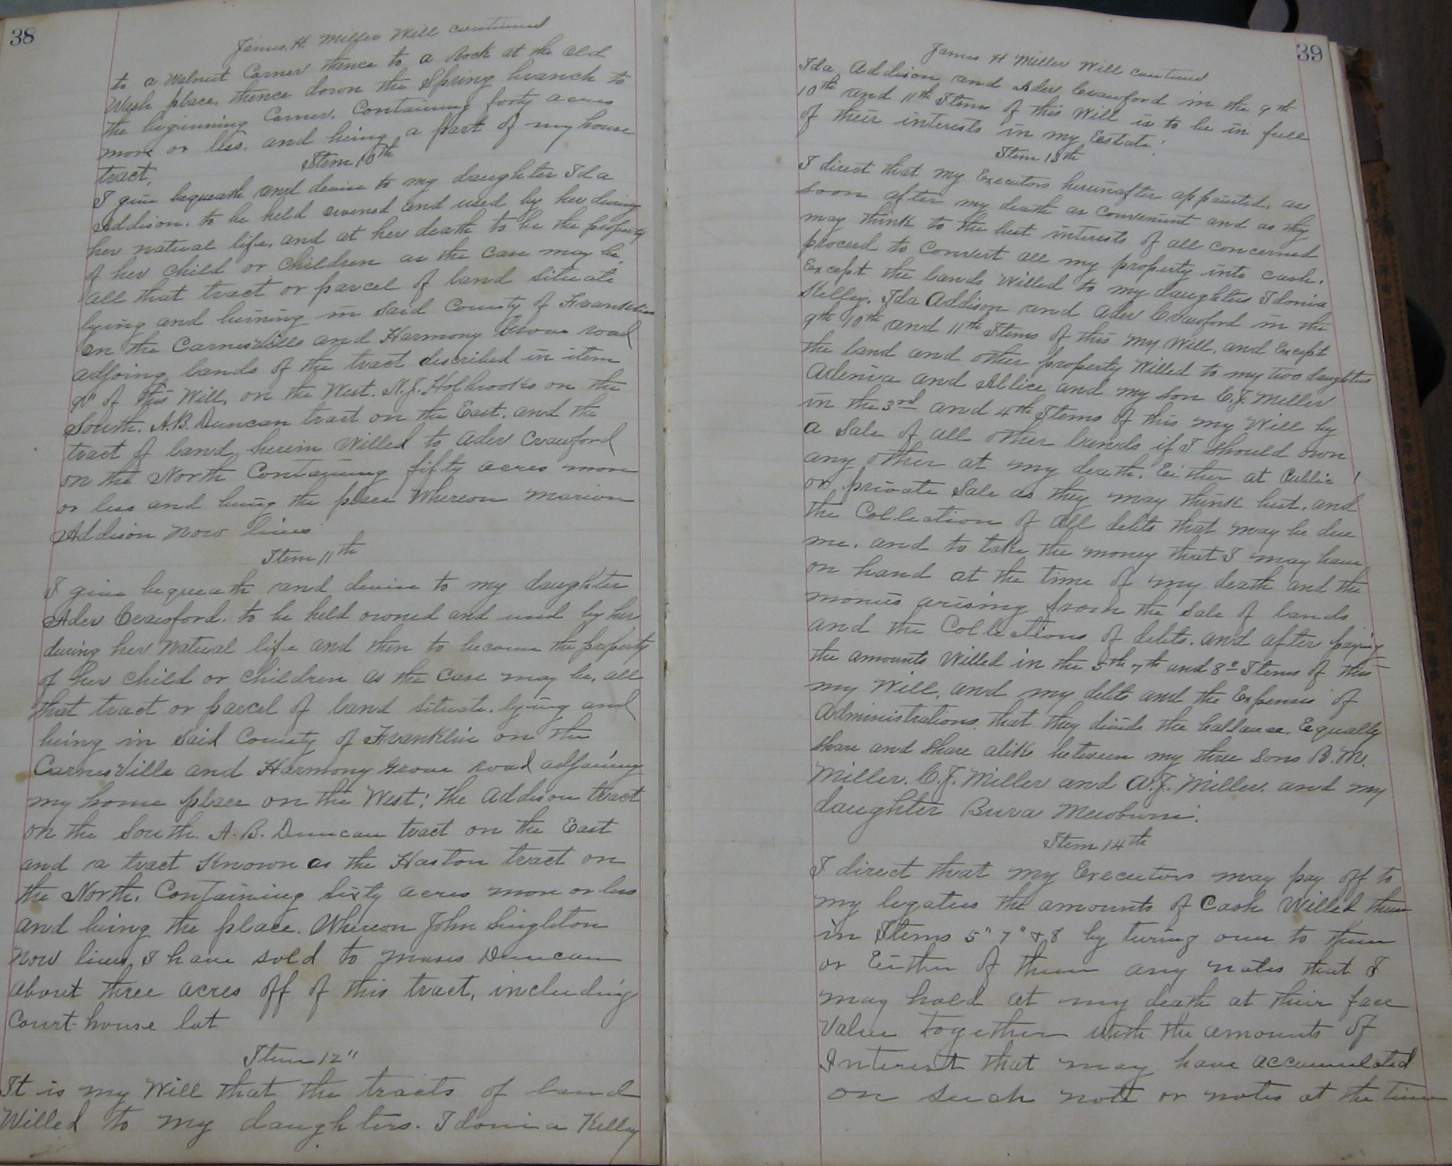 38
James. H. Miller Will continued
to a Walnut Corner thence to a Rock at the old
Wash place. thence down the Spring branch to
the beginning Corner. Containing forty acres
more or less. and being a part of my house
tract.
Item 10th
I give bequeath and devise to my daughter Ida
Addison. to be held owned and used by her during
her natural life. and at her death to be the property
of her child or children as the case may be.
all that tract or parcel of land situate
lying and being in said County of Franklin
on the Carnesville and Harmony Grove road
adjoing lands of the tract described in item
9th of this Will, on the West. N.J. Holbrooks on the
South. A.B. Duncan tract on the East. and the
tract of land, herein Willed to Ader Crawford
on the North Containing fifty acres more
or less and being the place Whereon Marion
Addison now lives
Item 11th
I give bequeath and devise to my daughter
Ader Crawford. to be held owned and used by her
during her natural life and then to become the property
of her child or children as the case may be, all
that tract or parcel of land situate. lying and
being in said County of Franklin on the
Carnesville and Harmony Grove road adjoining
my home place on the West; the Addison tract
on the South. A. B. Duncan tract on the East
and a tract Known as the Haston tract on
the North. Containing sixty acres more or less
and being the place. Whereon John Singleton
now lives. I have sold to Duncan
about three acres off of this tract, including
Court-house lot
Item 12"
It is my Will that the tracts of land
Willed to my daughters. Idonia Kelley
39
James H Miller Will continued
Ida Addison and Ader Crawford in the 9th
10th and 11th Items of this Will is to be in full
of their interests in my Estate.
Item 13th
I direct that my Executors hereinafter appointed. as
soon after my death as convenient and as they
may think to the best interests of all concerned
proceed to convert all my property into cash.
Except the lands Willed to my daughters Idonia
Kelley. Ida Addison and Ader Crawford in the
9th 10th and 11th Items of this my Will. and Except
the land and other property Willed to my two daughters
and Allice and my son C.J. Miller
in the 3rd and 4th Items of this my Will by
a Sale of all other lands if I should own
any other at my death. Either at Public
or private Sale as they may think best. and
the Collection of all debts that may be due
me. and to take the money that I may have
on hand at the time of my death and the
monies arising from the Sale of lands
and the Collections of debts. and after paying
the amounts Willed in the 5th 7th and 8" Items of this
my Will. and my debts and the Expenses of
Administrations. that they divide the ballance Equally
share and share alike between my three sons B.M.
Miller. C.J. Miller and A.J. Miller. and my
daughter Buva Mewborn.
Item 14th
I direct that my Executors may pay off to
my legatees the amounts of Cash Willed them
in Items 5" 7" & 8 by turing over to them
or Either of them any notes that I
may hold at my death at their face
Value together with the amounts of
Interest that may have accumulated
on such note or notes at the time